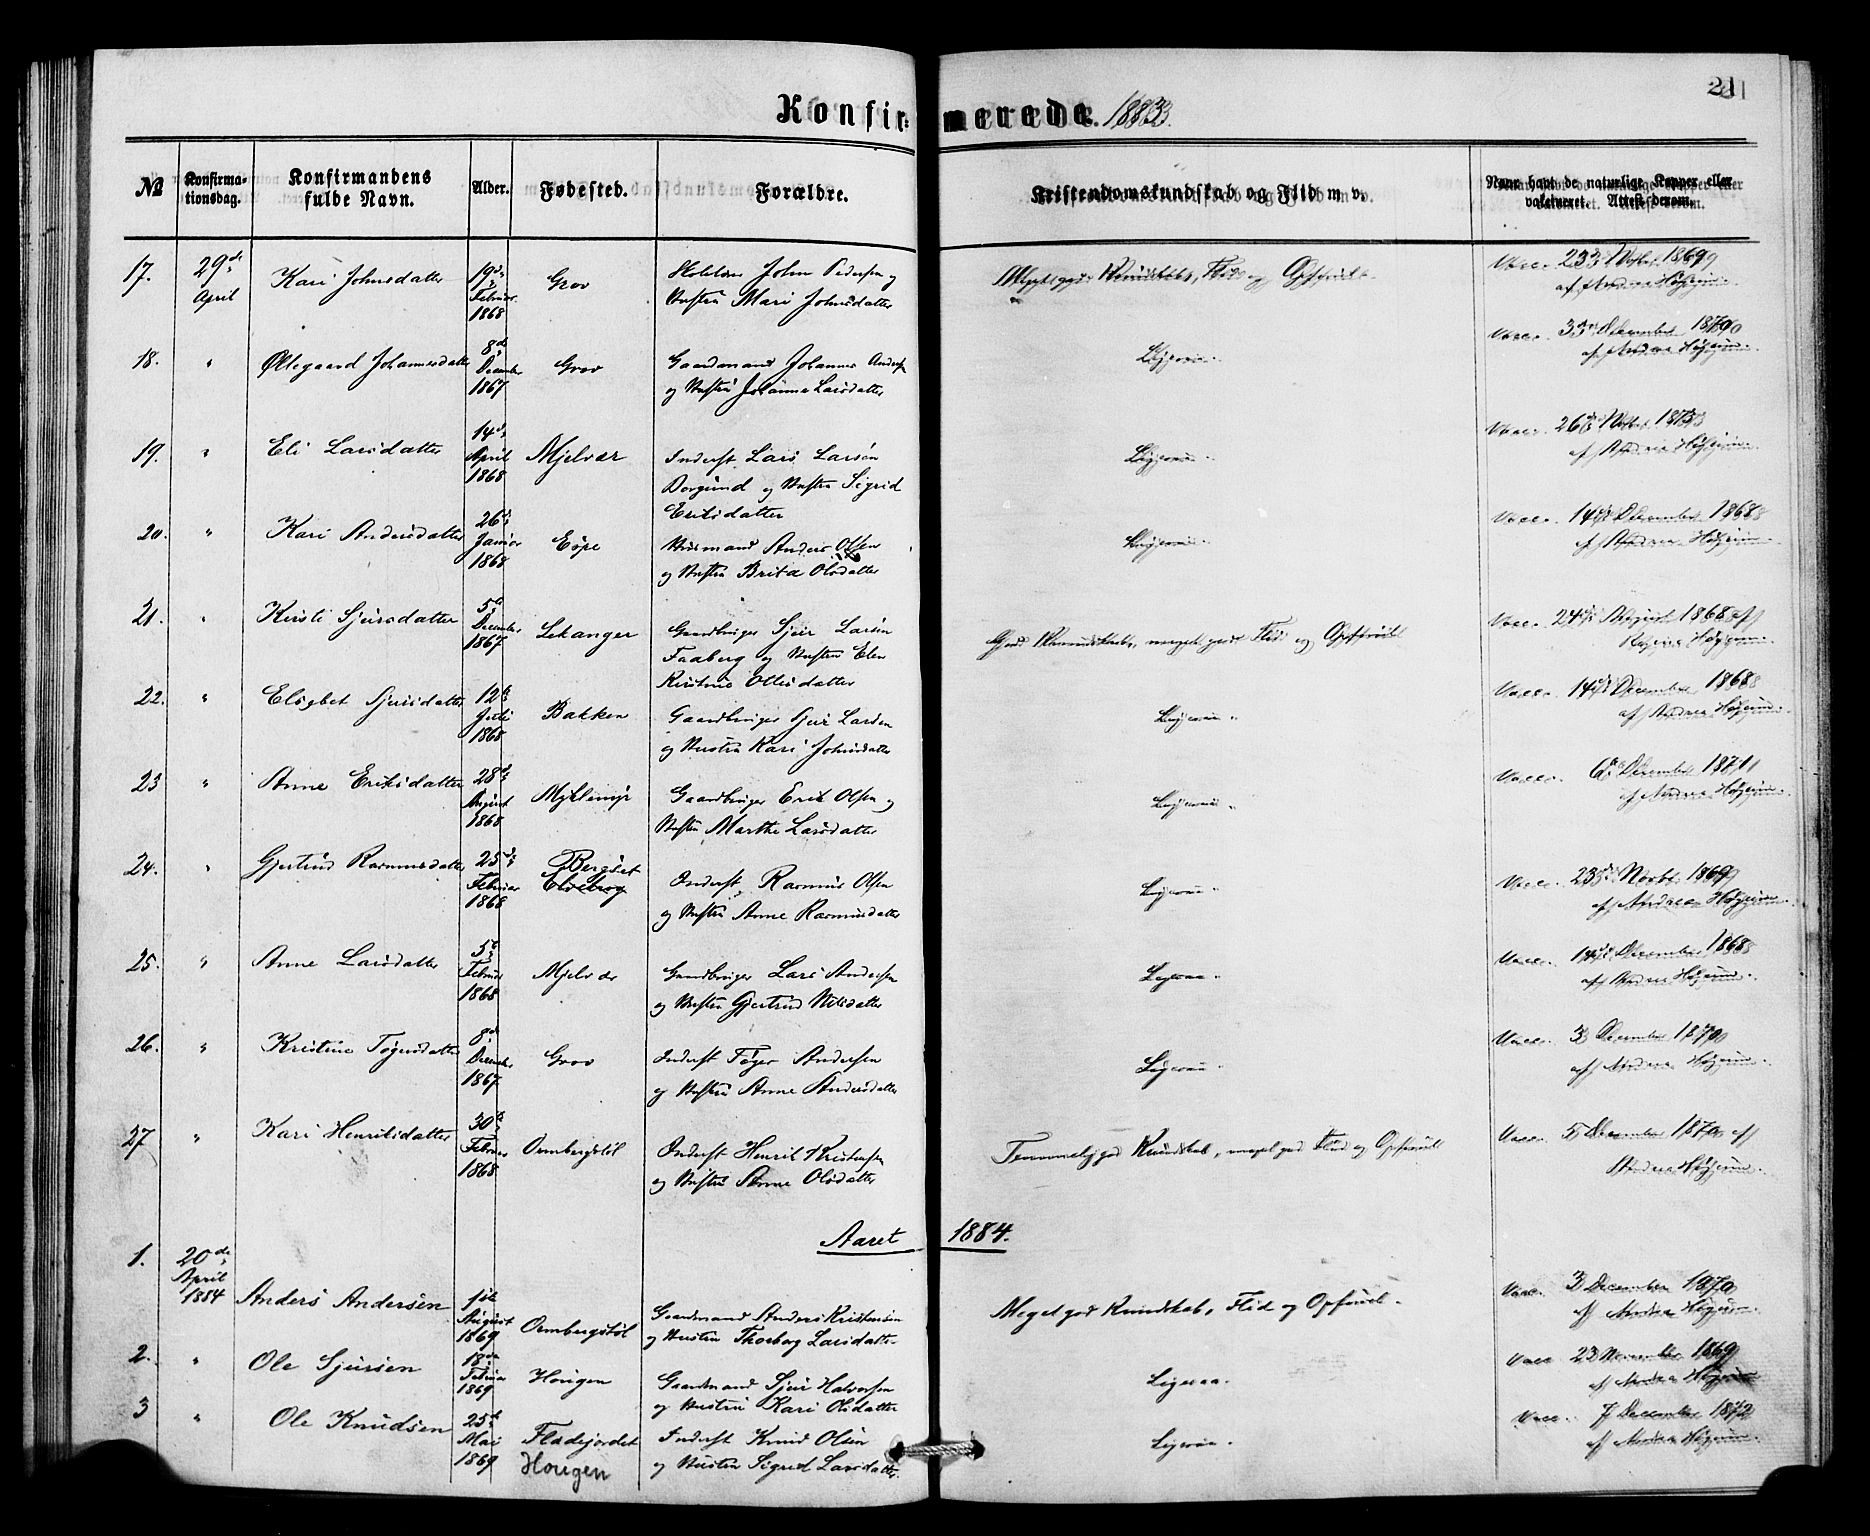 211
Konfirmerede. 1883.
№
Konfirma-
tionsdag.
Konfirmandens
fulde Navn.
Alder.
Fødested.
Forældre.
Kristendomskundskab og Flid m. v.
Naar havt de naturlige Kopper eller
vakcineret. Attest derom.
17. 29de April Kari Johnsdatter 19de Februar 1868 Grov
John Pedersen og
Hustru Mari Johnsdatter
Kundskab, Flid og Opførsel
Vacc. 23 1869
af Andrea Høyheim.
18. " Øllegaard Johannesdatter 8de December 1867 Grov
Gaardmand Johannes Andersen
og Hustru Johanna Larsdatter
Ligesaa.
Vacc. 3 December 1870
af Andrea Høyheim.
19. " Eli Larsdatter 14de April 1868 Mjelvær
Inderst Lars Larsen
Borgund og Hustru Sigrid
Eriksdatter
Ligesaa.
Vacc. 26 1873
af Andrea Høyheim.
20. " Kari Andersdatter 26de Januar 1868 Espe
Husmand Anders Olsen
og Hustru Brita Olsdatter
Ligesaa.
Vacc. 14de December 1868
af Andrea Høyheim.
21. " Kirsti Sjursdatter 5te December 1867 Lekanger
Gaardbruger Sjur Larsen
Faaberg og Hustru Elen
Kristine Ottesdatter
God Kundskab, meget god Flid og Opførsel
Vacc. 24de August 1868 af
Høyheim.
22. " Elisbet Sjursdatter 12te Juli 1868 Bakken
Gaardbruger Sjur Larsen
og Hustru Kari Johnsdatter
Ligesaa.
Vacc. 14de December 1868
af Andrea Høyheim.
23 " Anne Eriksdatter 28de August 1868 Myklemyr
Gaardbruger Erik Olsen og
Hustru Marthe Larsdatter
Ligesaa.
Vacc. 6 December 1871
af Andrea Høyheim.
24. " Gjertrud Rasmusdatter 25de Februar 1868 Bergset
Inderst Rasmus Olsen
og Hustru Anne Rasmusdatter
Ligesaa.
Vacc. 23de Novbr. 1869
af Andrea Høyheim.
25. " Anne Larsdatter 5te Februar 1868 Mjelvær
Gaardbruger Lars Andersen
og Hustru Gjertrud Nilsdatter
Ligesaa.
Vacc. 14de December 1868
af Andrea Høyheim.
26. " Kristine Tøgersdatter 8de December 1867 Grov
Inderst Tøger Andersen
og Hustru Anne Andersdatter
Ligesaa.
Vacc. 3 December 1870
af Andrea Høyheim.
27 " Kari Henriksdatter 30te Februar 1868 Ormbergstøl
Inderst Henrik Kristensen
og Hustru Anne Olsdatter
Temmelig god Kundskab, meget god Flid og Opførsel
Vacc. 5 December 1870 af
Andrea Høyheim.
Aaret 1884.
1. 20de April 1884 Anders Andersen 1ste August 1869 Ormbergstøl
Gaardmand Anders Kristensen
og Hustru Thorborg Larsdatter
Meget god Kundskab, Flid og Opførsel.
Vacc. 3 December 1870
af Andrea Høyheim.
2. " Ole Sjursen 18de Februar 1869 Hougen
Gaardmand Sjur Halvorsen
og Hustru Kari Olsdatter
Ligesaa.
Vacc. 23 November 1869
af Andrea Høyheim
3 " Ole Knudsen 25de Mai 1869 Fladejordet
Hougen
Inderst Knud Olsen
og Hustru Sigrid Larsdatter.
Ligesaa.
Vacc. 7 December 1872
af Andrea Høyheim.